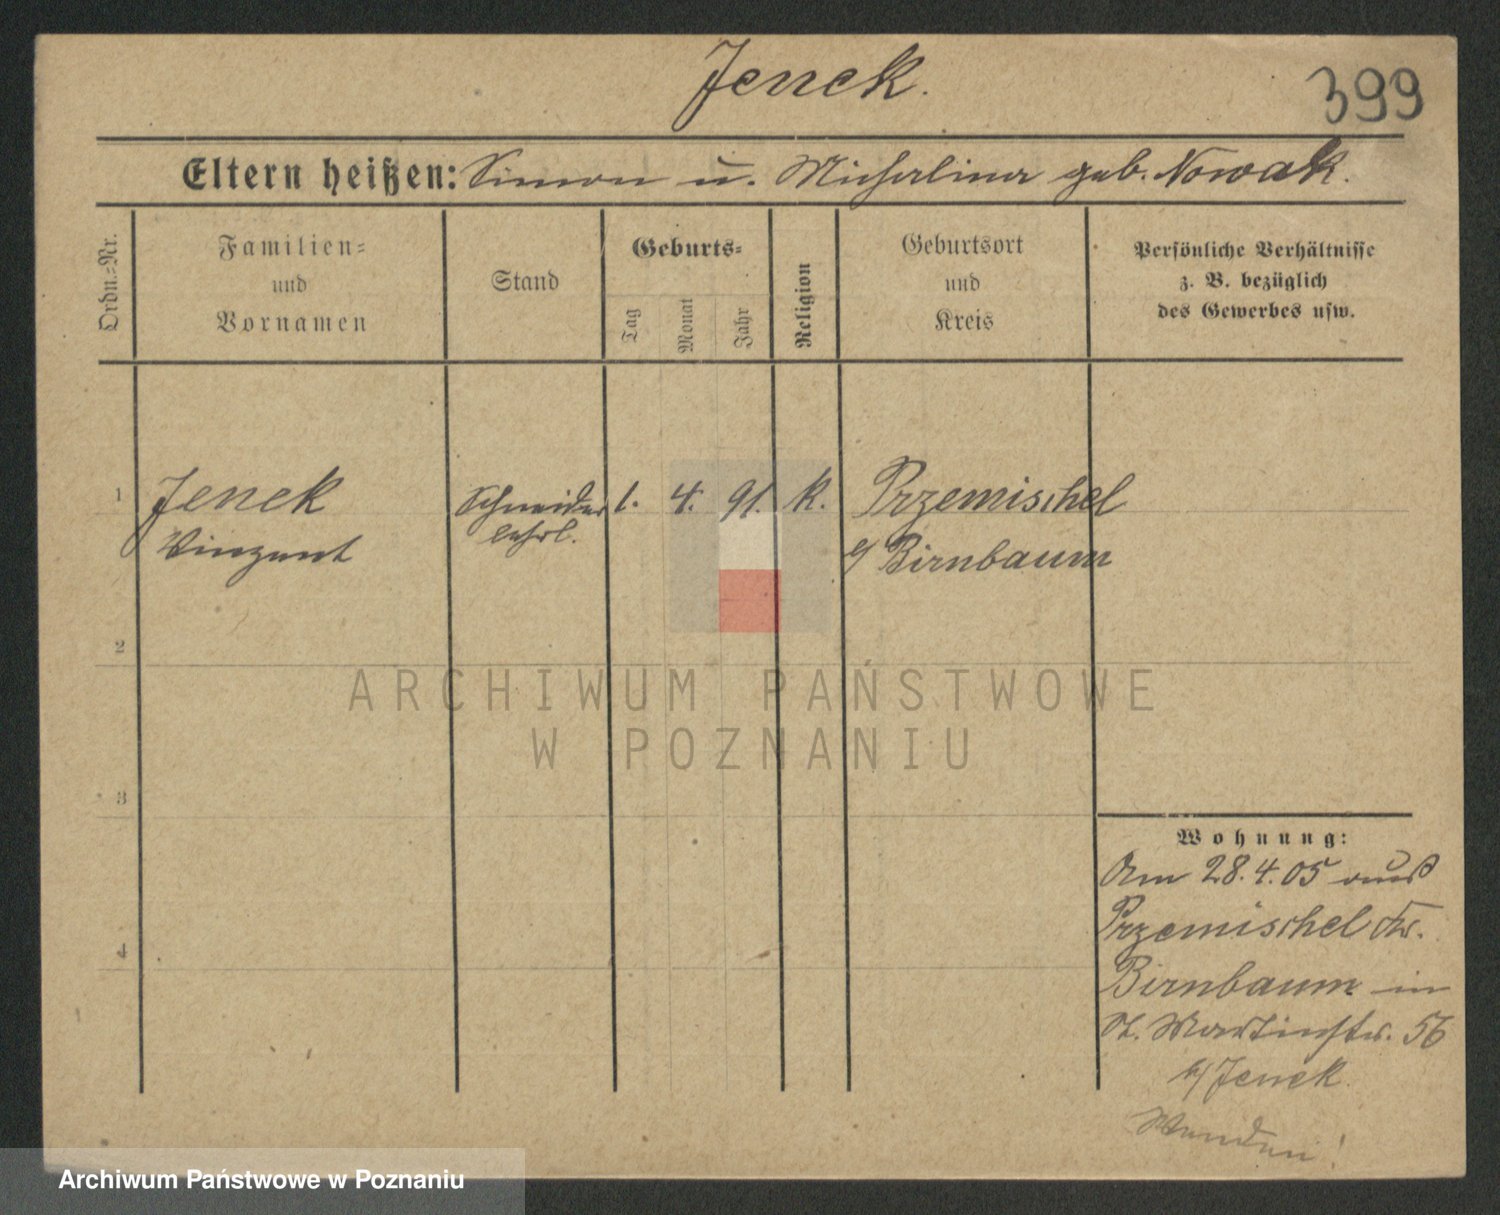 Jenek.
399
Eltern heißen: Simon u. Michalina geb. Nowak.
Ordn.=Nr.
Familien=
und
Vornamen
Stand
Geburts=
Tag
Monat
Jahr
Religion
Geburtsort
und
Kreis
Persönliche Verhältnisse
z. B. bezüglich
des Gewerbes usw.
1 Jenek Schneider 1. 4. 91. k. Przemischel
Vinzent lehrl. Birnbaum
2
3
4
Wohnung:
Am 28.4.05 aus
Przemischel Kr.
Birnbaum in
St. Martinstr. 56
b/ Jenek.
Wenden!
ARCHIWUM PAŃSTWOWE
W POZNANIU
Archiwum Państwowe w Poznaniu